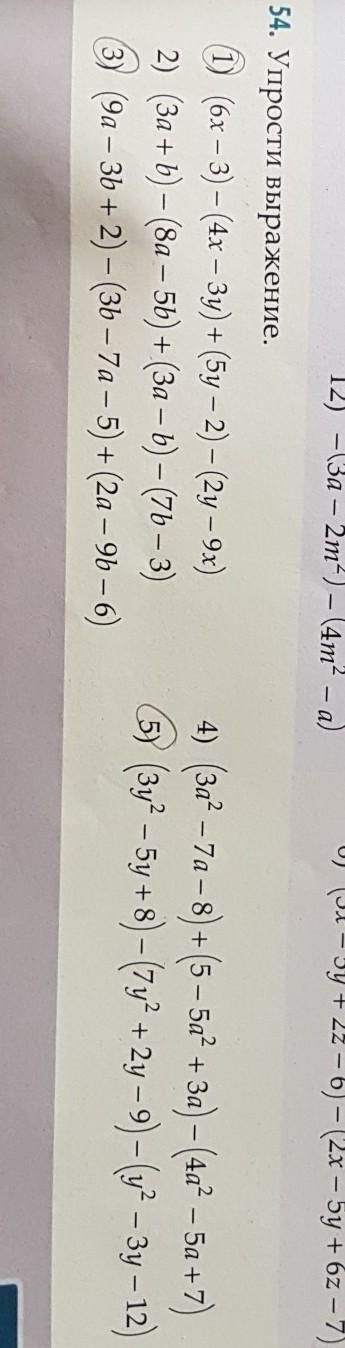 12) –(3a – 2m²) – (4m² – a)
– 5y + 2z – 6) – (2x – 5y + 6z – 7)
54. Упрости выражение.
1) (6x – 3) – (4x – 3y) + (5y – 2) – (2y – 9x)
2) (3a + b) – (8a – 5b) + (3a – b) – (7b – 3)
3) (9a – 3b + 2) – (3b – 7a – 5) + (2a – 9b – 6)
4) (3a² – 7a – 8) + (5 – 5a² + 3a) – (4a² – 5a + 7)
5) (3y² – 5y + 8) – (7y² + 2y – 9) – (y² – 3y – 12)